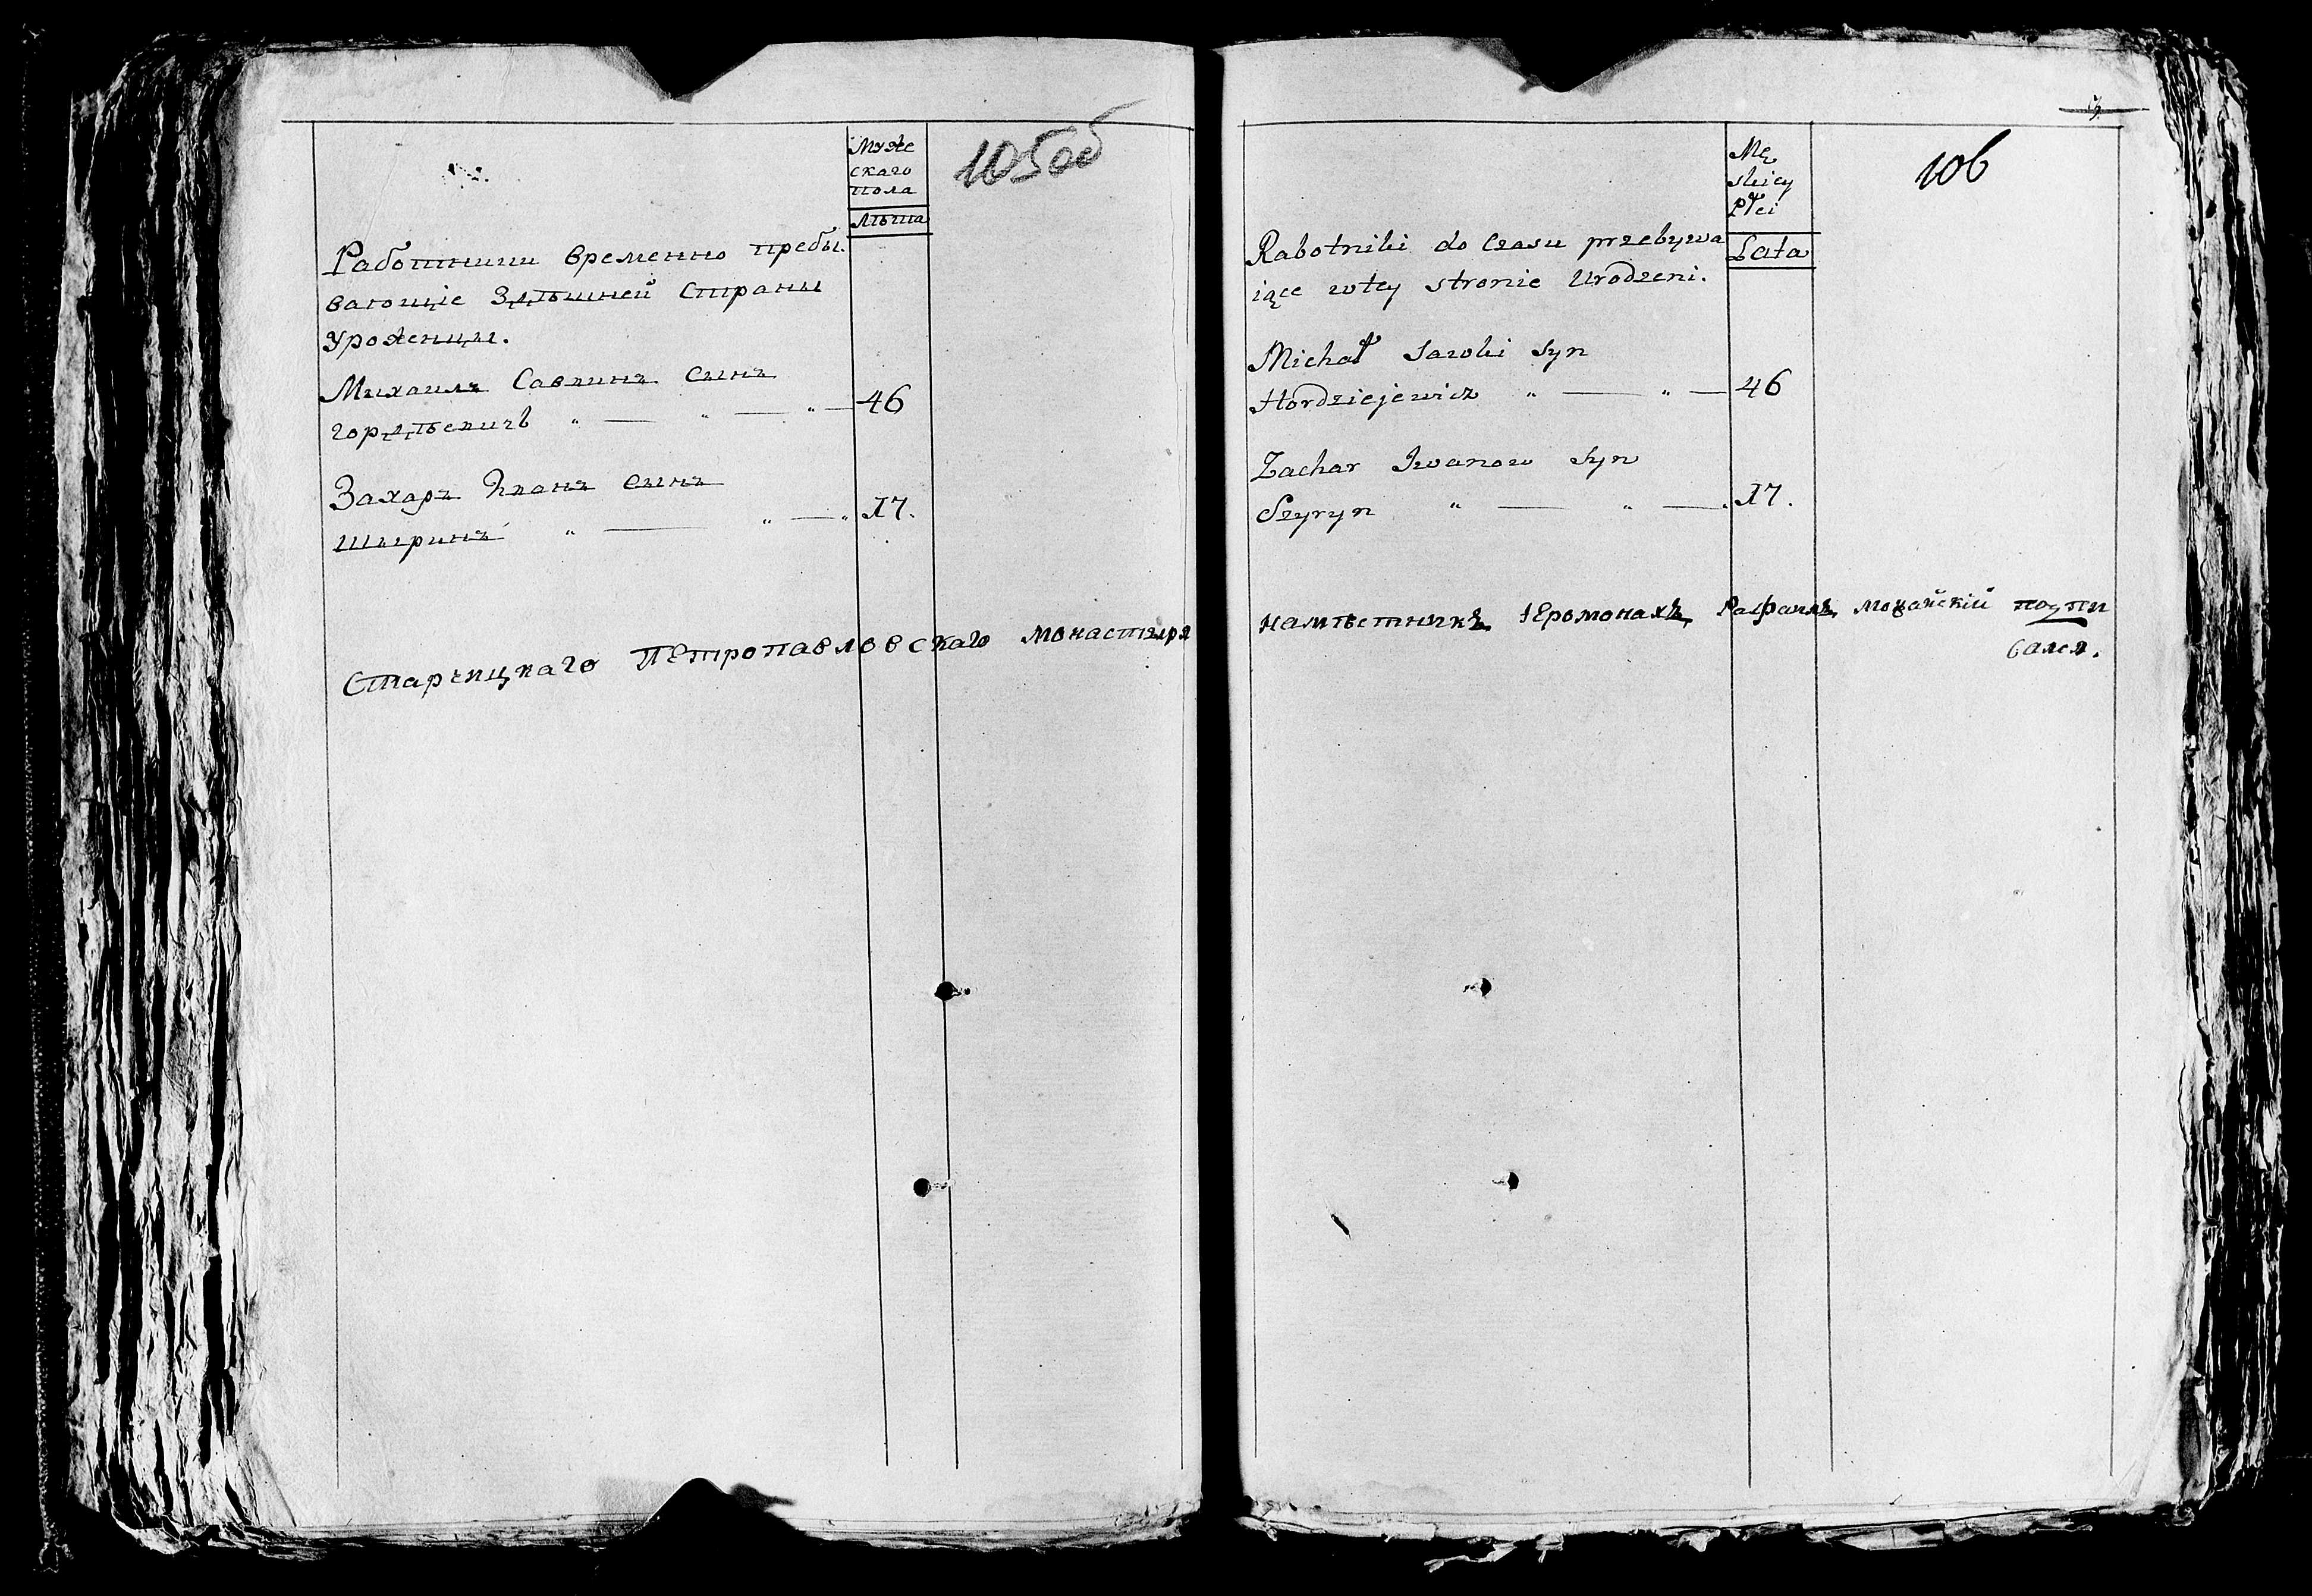 Муже
скаго
пола
Лѣта
105об
Работники временно пребы
вающіе здѣшней страны
уроженцы.
Михаилъ Савкинъ сынъ
гордѣевичъ " — " — " — 46
Захаръ Иванъ сынъ
Шыринъ " — " — " 17.
Старчицкаго Петропавловскаго монастыря
Mę
skiey
Płci
Lata
106
Rabotniki do Czasu przebywa
iące wtey stronie Urodzeni.
Michał Sawki Syn
Hordziejewicz " — " — 46
Zachar Iwanow Syn
Szyryn " — " — 17.
намѣстникъ іеромонахъ Рафаилъ можайскій подпи
сался.